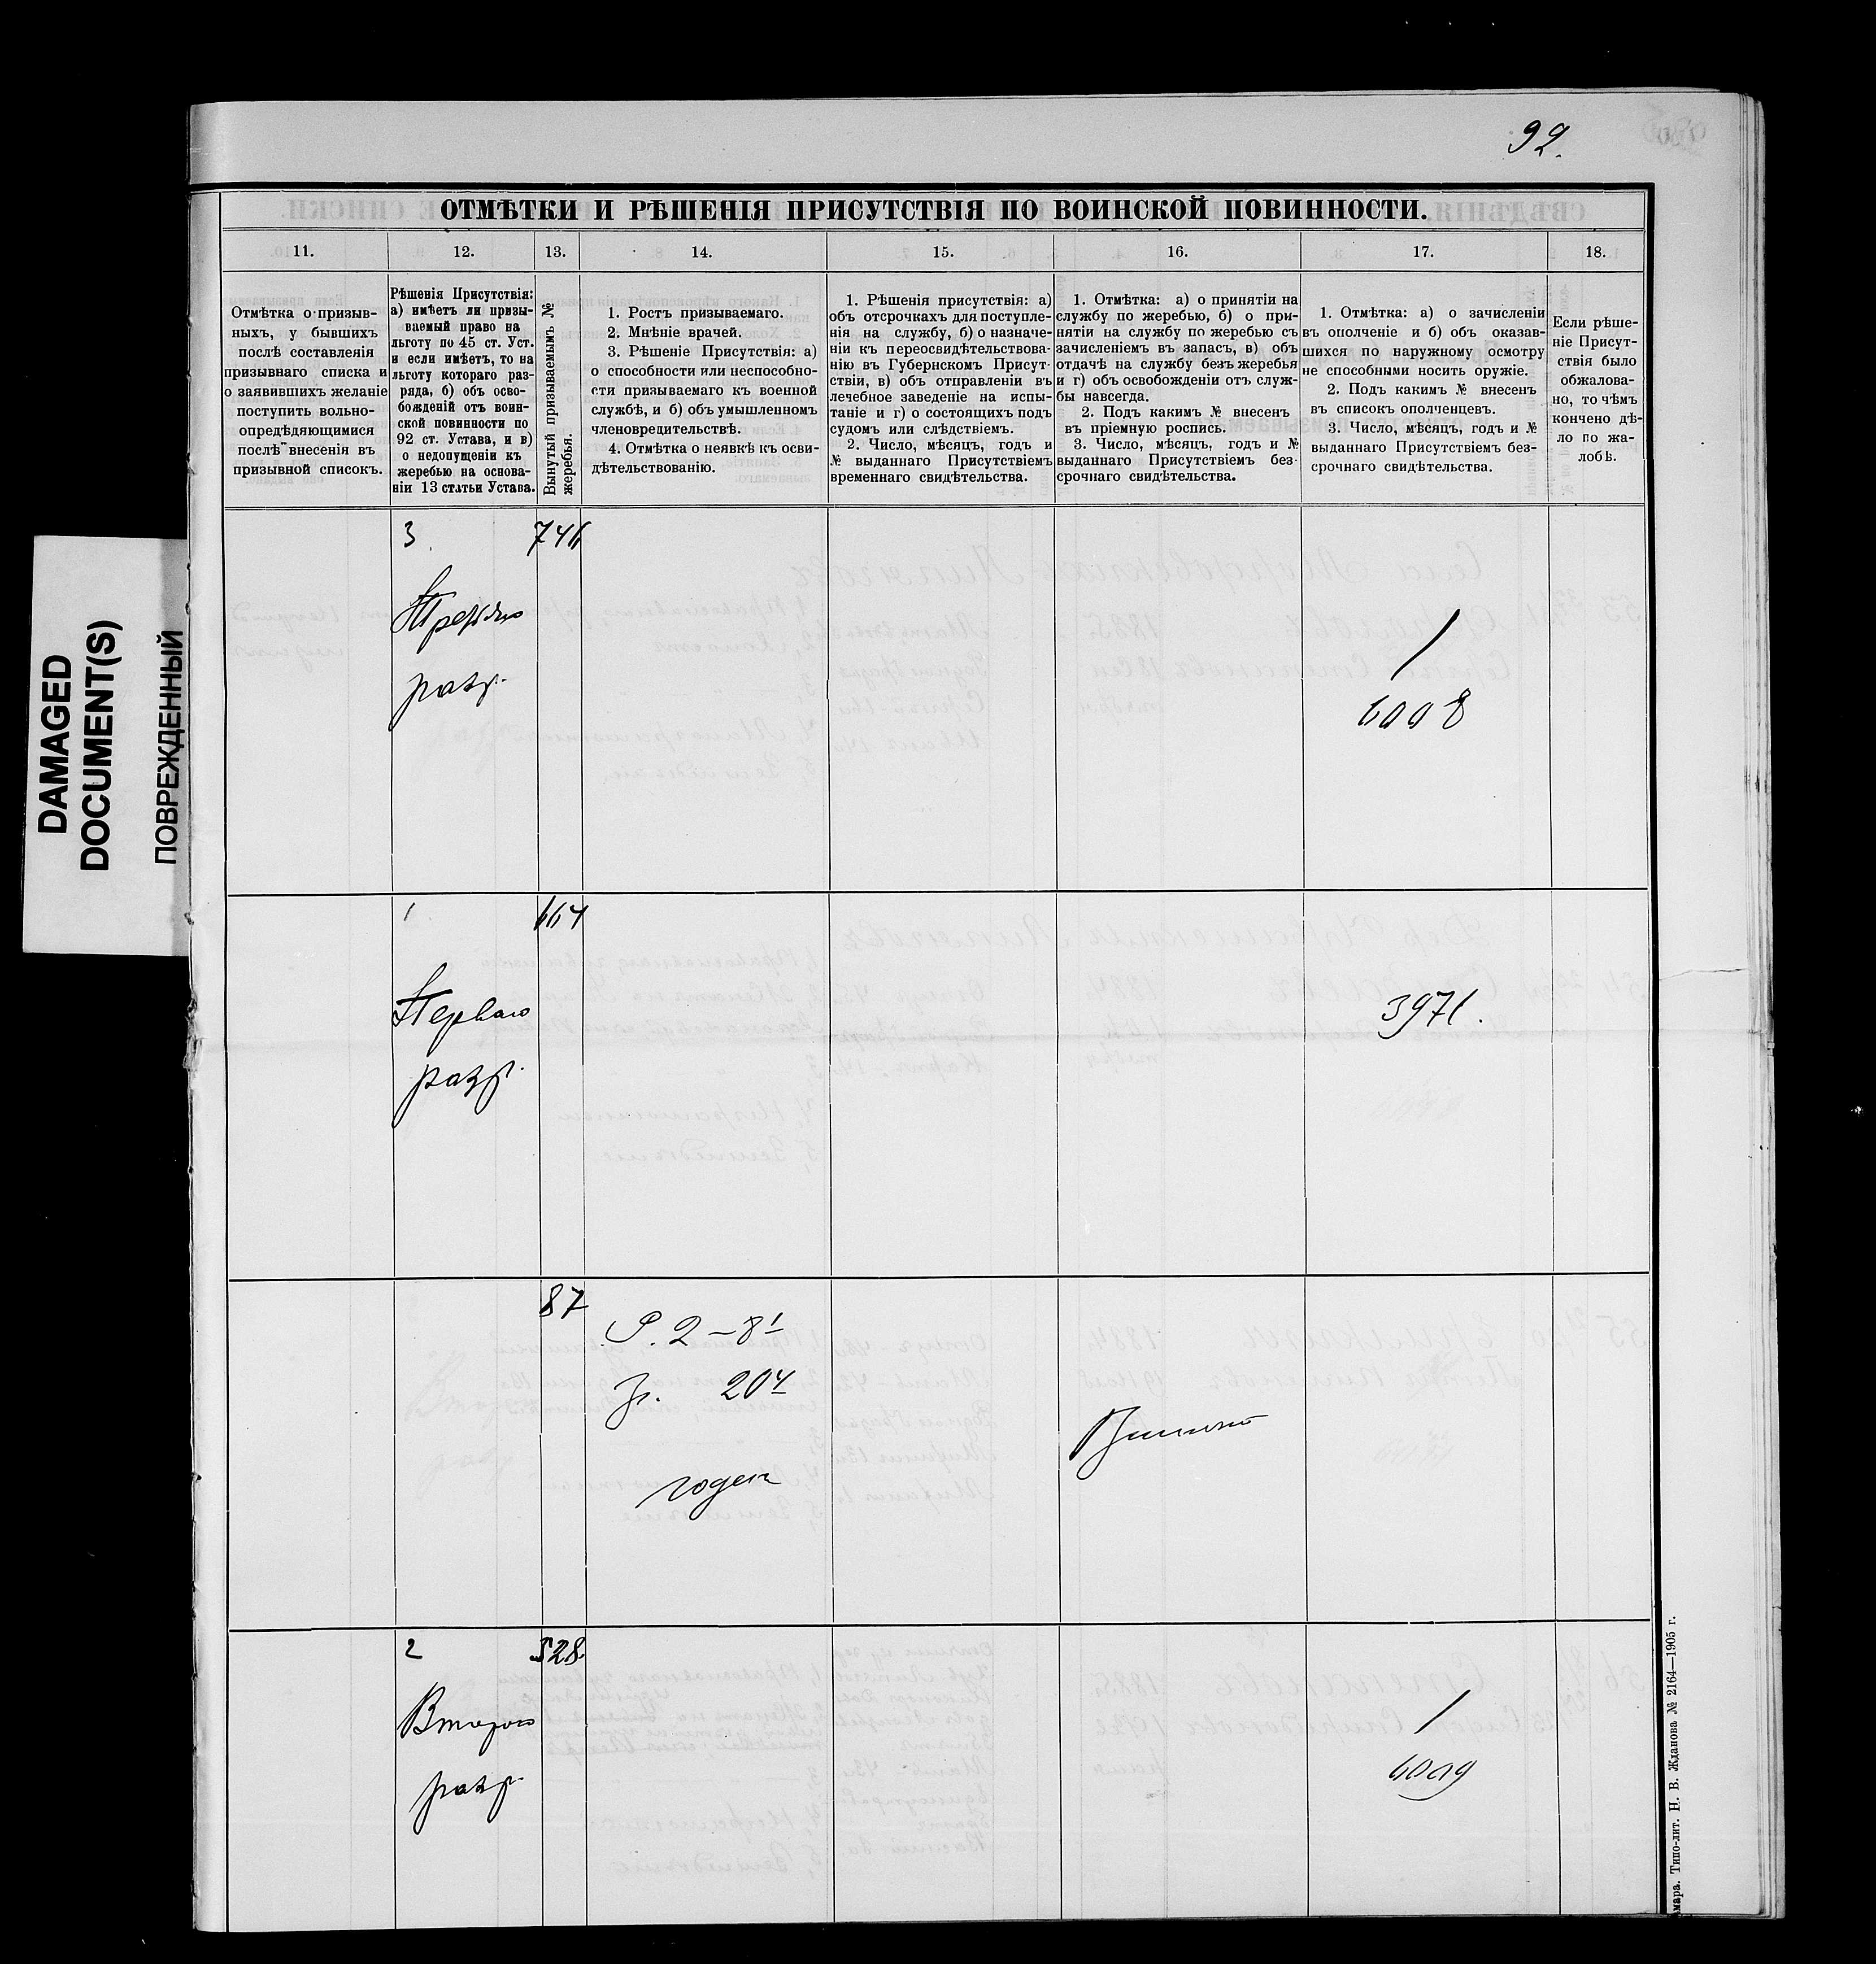 92.
ОТМѢТКИ И РѢШЕНІЯ ПРИСУТСТВІЯ ПО ВОИНСКОЙ ПОВИННОСТИ.
11. 12. 13. 14. 15. 16. 17. 18.
Отмѣтка о призыв-
ныхъ, у бывшихъ
послѣ составленія
призывнаго списка и
о заявившихъ желаніе
поступить вольно-
опредѣдяющимися
послѣ внесенія въ
призывной списокъ.
Рѣшенія Присутствія:
а) имѣетъ ли призы-
ваемый право на
льготу по 45 ст. Уст.
и если имѣетъ, то на
льготу котораго раз-
ряда, б) объ осво-
божденій отъ воин-
ской повинности по
92 ст. Устава, и в)
о недопущеніи къ
жеребью на основа-
ніи 13 статьи Устава.
Вынутый призываемымъ №
жеребья.
1. Ростъ призываемаго.
2. Мнѣніе врачей.
3. Рѣшеніе Присутствія: а)
о способности или неспособно-
сти призываемаго къ военной
службѣ, и б) объ умышленномъ
членовредительствѣ.
4. Отмѣтка о неявкѣ къ осви-
дѣтельствованію.
1. Рѣшенія присутствія: а)
объ отсрочкахъ для поступле-
нія на службу, б) о назначе-
ніи къ переосвидѣтельствова-
нію въ Губернскомъ Присут-
ствіи, в) объ отправленіи въ
лечебное заведеніе на испы-
таніе и г) о состоящихъ подъ
судомъ или слѣдствіемъ.
2. Число, мѣсяцъ, годъ и
№ выданнаго Присутствіемъ
временнаго свидѣтельства.
1. Отмѣтка: а) о принятіи на
службу по жеребью, б) о при-
нятіи на службу по жеребью съ
зачисленіемъ въ запасъ, в) объ
отдачѣ на службу безъ жеребья
и г) объ освобожденіи отъ служ-
бы навсегда.
2. Подъ какимъ № внесенъ
въ пріемную роспись.
3. Число, мѣсяцъ, годъ и №
выданнаго Присутствіемъ без-
срочнаго свидѣтельства.
1. Отмѣтка: а) о зачисленіи
въ ополченіе и б) объ оказав-
шихся по наружному осмотру
не способными носить оружіе.
2. Подъ какимъ № внесенъ
въ списокъ ополченцевъ.
3. Число, мѣсяцъ, годъ и №
выданнаго Присутствіемъ без-
срочнаго свидѣтельства.
Если рѣше-
ніе Присут-
ствія было
обжалова-
но, то чѣмъ
кончено дѣ-
ло по жа-
лобѣ.
3
Третьяго
разр.
1
6008
1 664
Перваго
разр.
3971.
87
Р. 2 – 8
гр. 20
годенъ
2 528
Второго
разр.
1
6009
DAMAGED
DOCUMENT(S)
ПОВРЕЖДЕННЫЙ
мара. Типо-лит. Н. В. Жданова № 2164—1905 г.